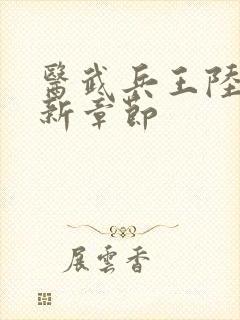 醫武兵王陸
新章節
展雲香